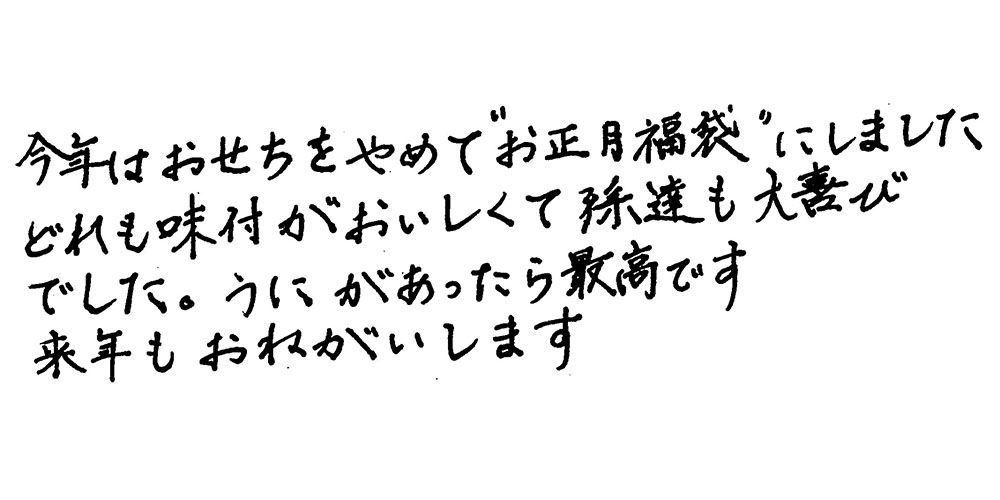 今年はおせちをやめて"お正月福袋"にしました
どれも味付がおいしくて孫達も大喜び
でした。うにがあったら最高です
来年もおねがいします